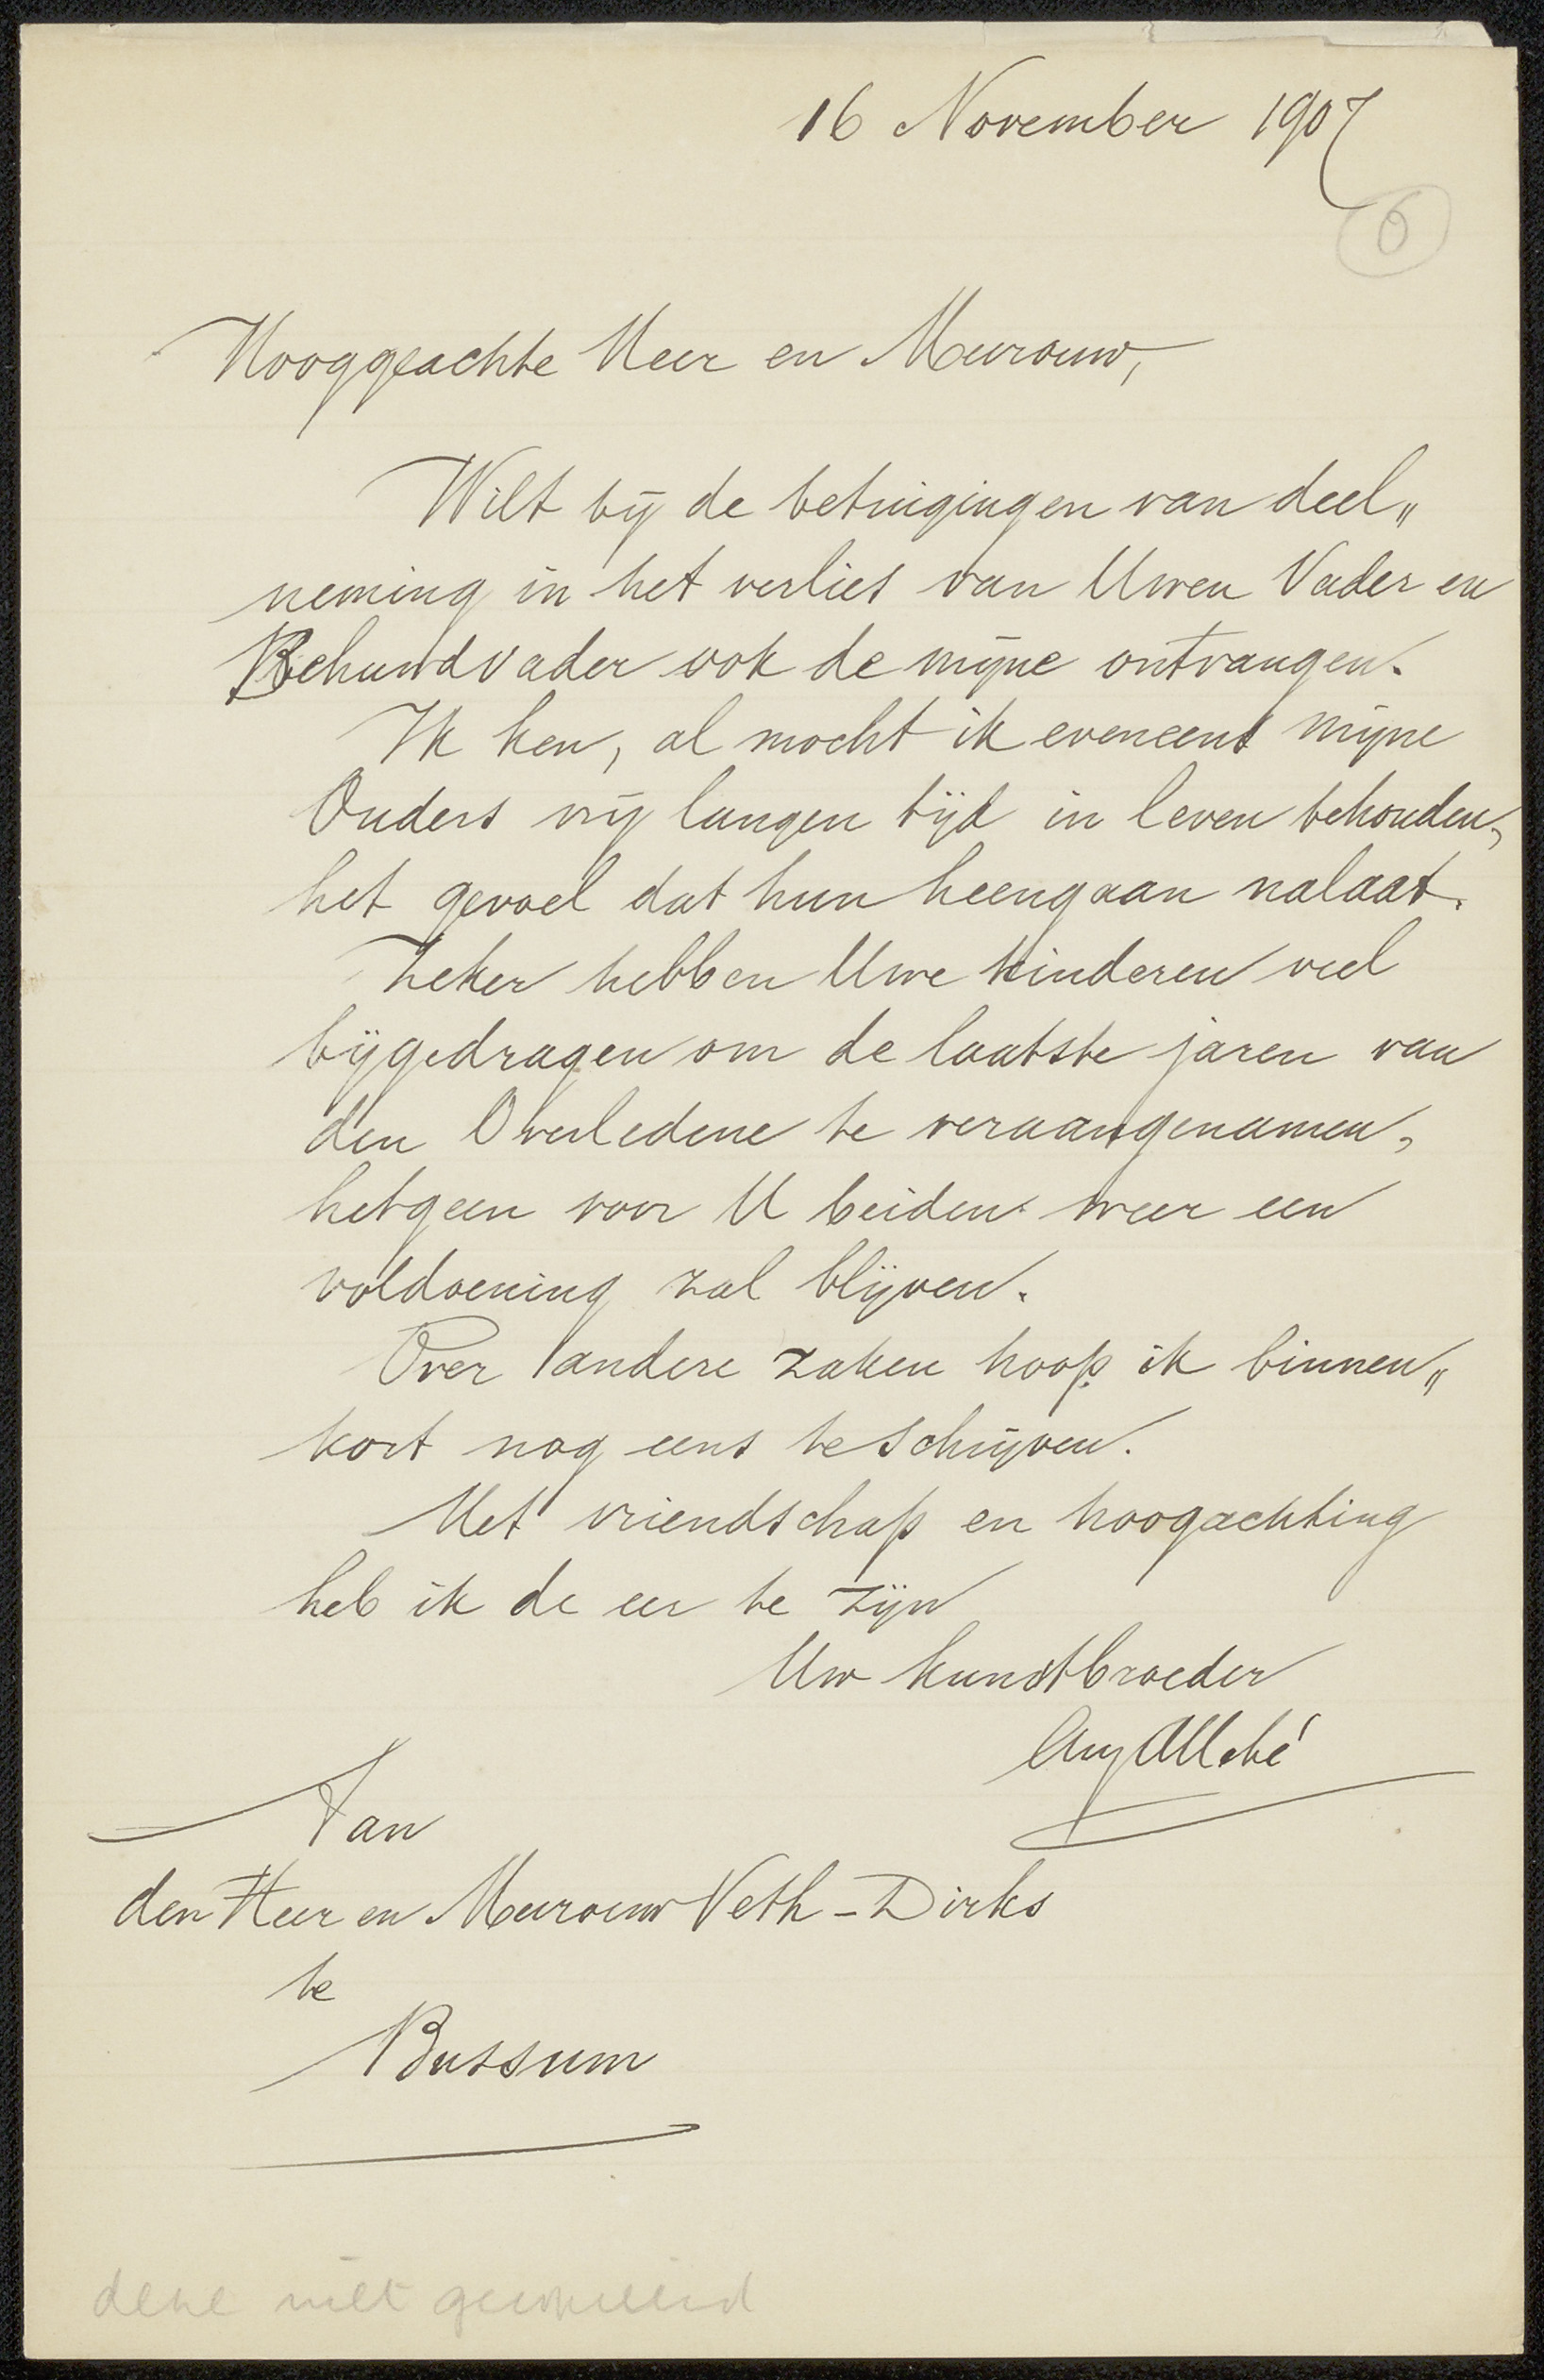 16 November 1907
6
Hooggeachte Heer en Mevrouw,
Wilt bij de betuigingen van deel„
neming in het verlies van Uwen Vader en
Behuwdvader ook de mijne ontvangen.
Ik ken, al mocht ik eveneens mijne
Ouders vrij langen tijd in leven behouden,
het gevoel dat hun heengaan nalaat.
Zeker hebben Uwe kinderen veel
bijgedragen om de laatste jaren van
den Overledene te veraangenamen,
hetgeen voor U beiden weer een
voldoening zal blijven.
Over andere zaken hoop ik binnen„
kort nog eens te schrijven.
Met vriendschap en hoogachting
heb ik de eer te zijn
Uw kunstbroeder
Aug Allebé
Aan
den Heer en Mevrouw Veth-Dirks
te
Bussum
deze niet